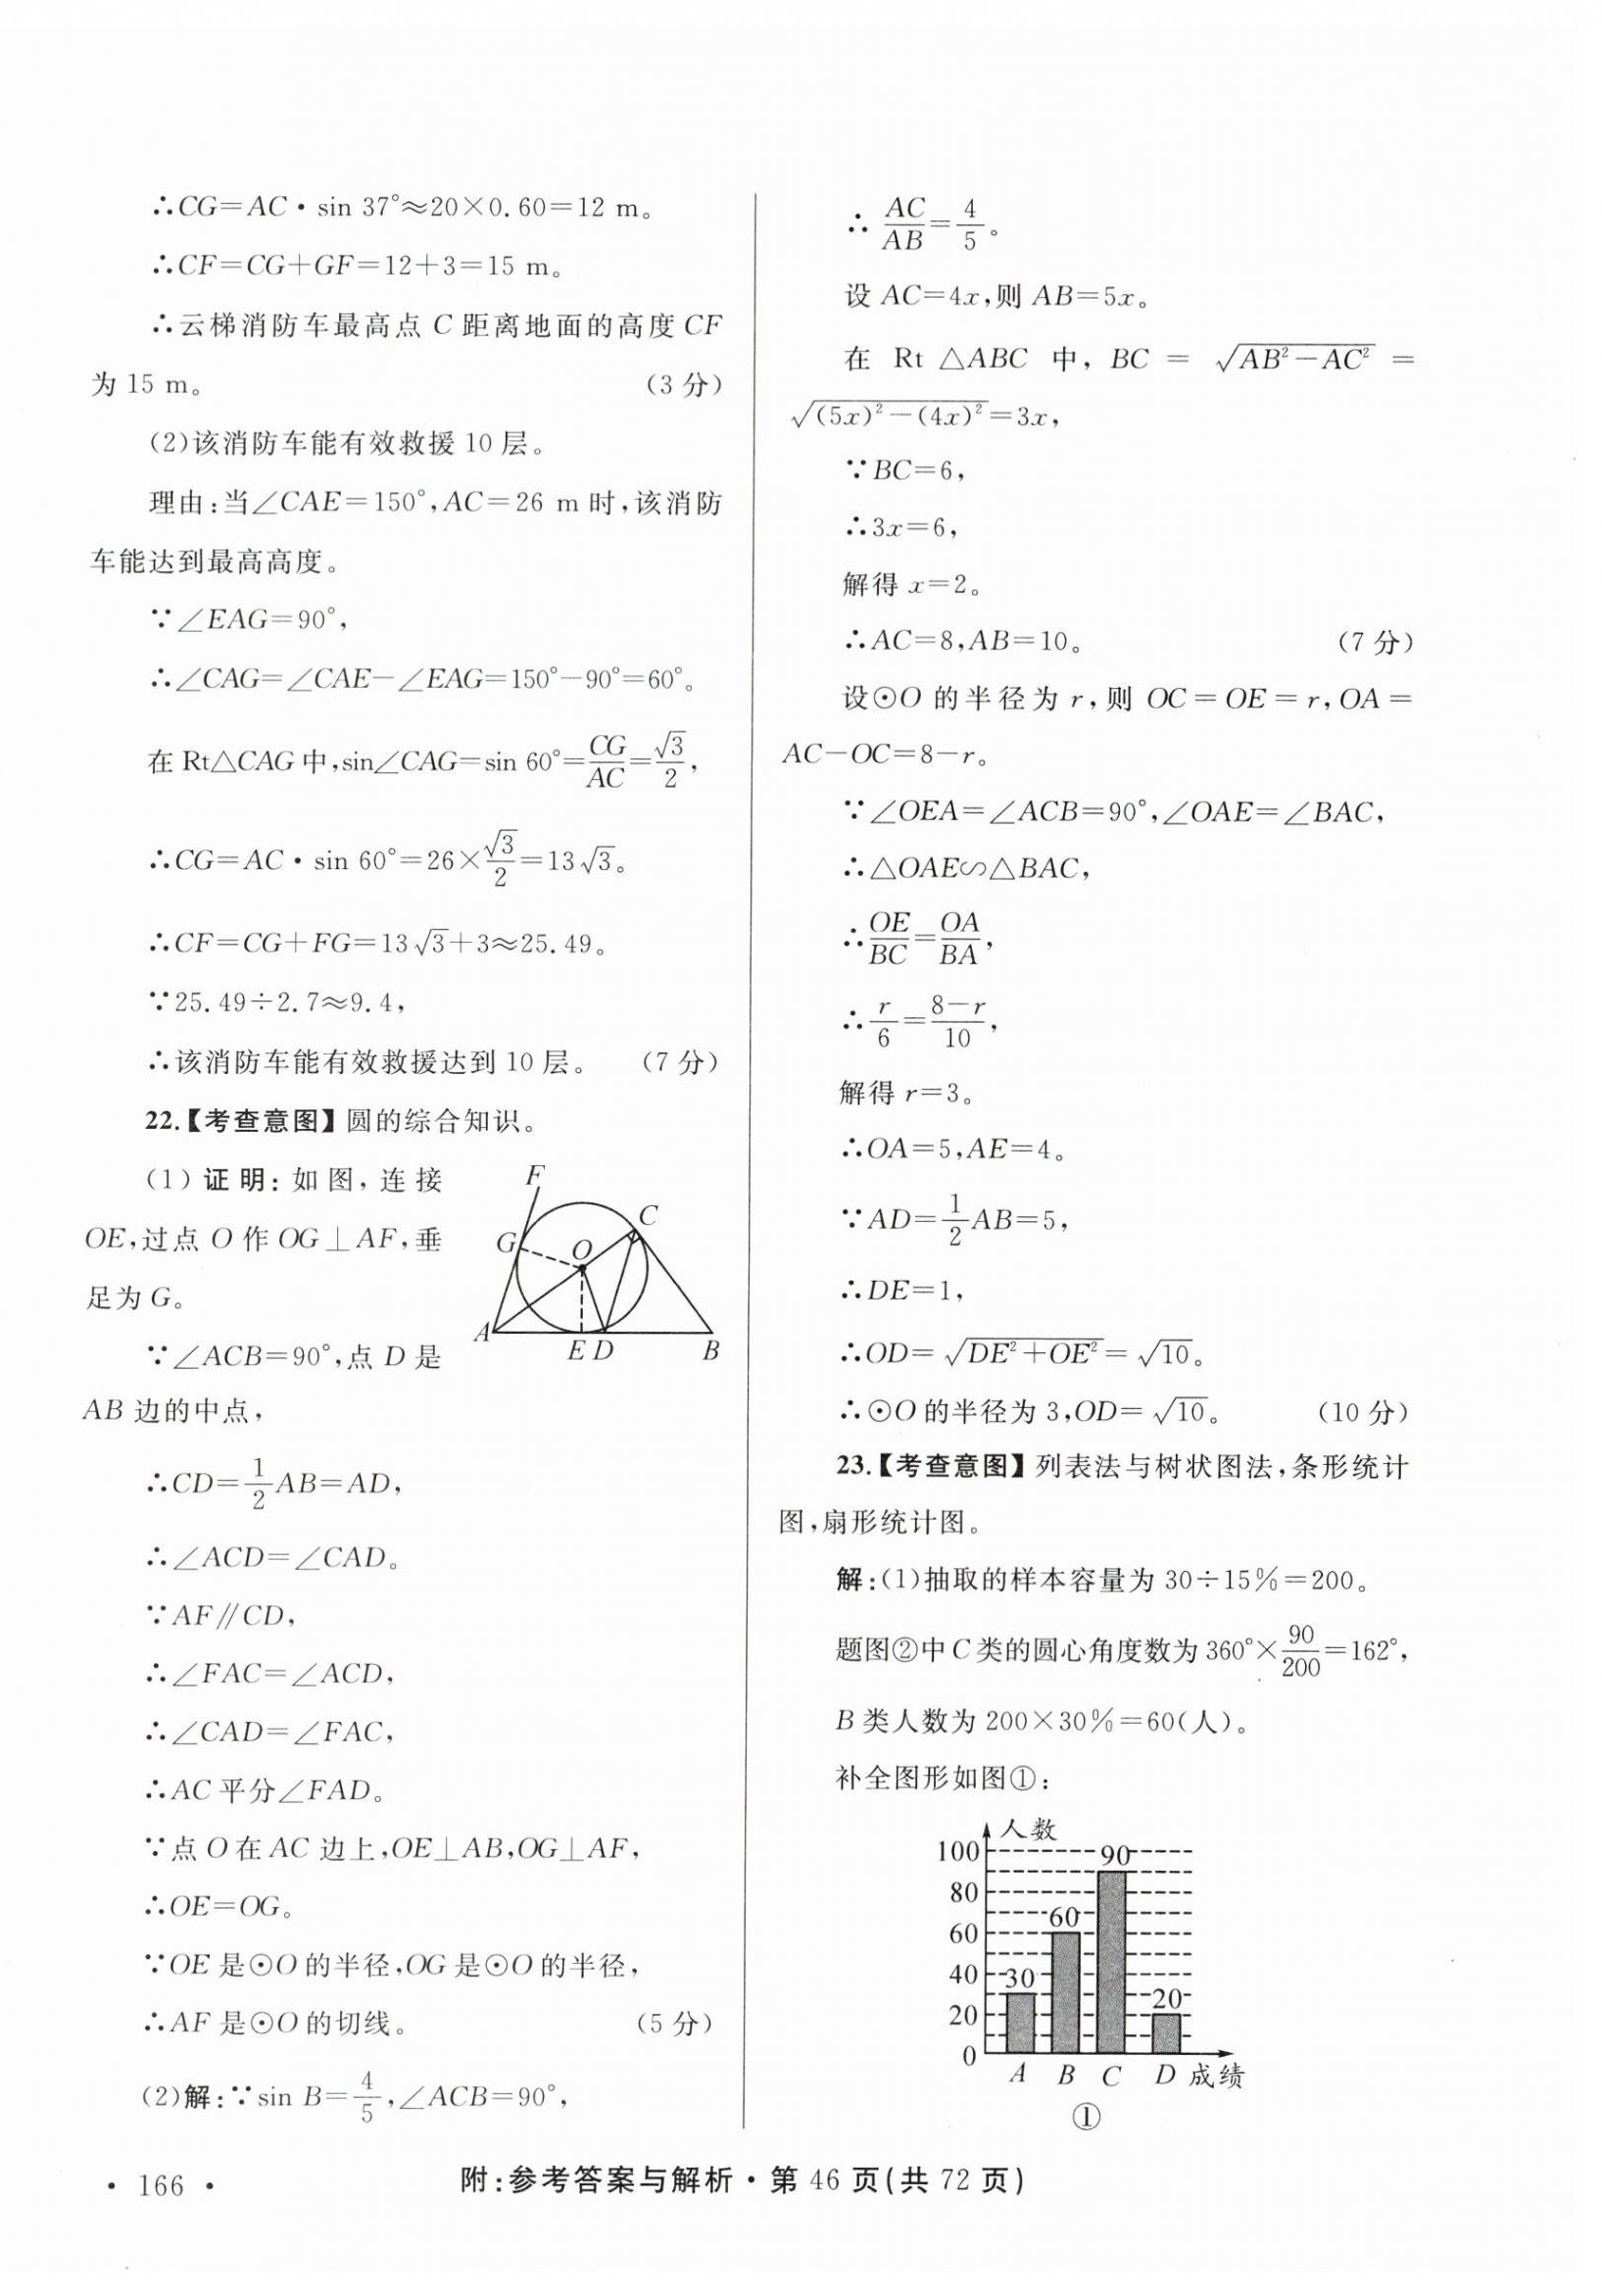 ∴CG=AC·sin 37°≈20×0.60=12 m。
∴CF=CG+GF=12+3=15 m。
∴云梯消防车最高点 C 距离地面的高度 CF
为 15 m。 (3 分)
(2)该消防车能有效救援 10 层。
理由:当∠CAE=150°,AC=26 m 时,该消防
车能达到最高高度。
∵∠EAG=90°,
∴∠CAG=∠CAE-∠EAG=150°-90°=60°。
在 Rt△CAG 中,sin∠CAG=sin 60°=CG/AC=√3/2,
∴CG=AC·sin 60°=26×√3/2=13√3。
∴CF=CG+FG=13√3+3≈25.49。
∵25.49÷2.7≈9.4,
∴该消防车能有效救援达到 10 层。 (7 分)
22.【考查意图】圆的综合知识。
(1)证明:如图,连接
OE,过点 O 作 OG⊥AF,垂
足为 G。
∵∠ACB=90°,点 D 是
AB 边的中点,
F
C
G
O
A
E D
B
∴CD=1/2AB=AD,
∴∠ACD=∠CAD。
∵AF∥CD,
∴∠FAC=∠ACD,
∴∠CAD=∠FAC,
∴AC 平分∠FAD。
∵点 O 在 AC 边上,OE⊥AB,OG⊥AF,
∴OE=OG。
∵OE 是⊙O 的半径,OG 是⊙O 的半径,
∴AF 是⊙O 的切线。 (5 分)
(2)解:∵sin B=4/5,∠ACB=90°,
∴AC/AB=4/5。
设 AC=4x,则 AB=5x。
在 Rt △ABC 中, BC = √(AB²-AC²) =
√((5x)²-(4x)²)=3x,
∵BC=6,
∴3x=6,
解得 x=2。
∴AC=8,AB=10。 (7 分)
设⊙O 的半径为 r,则 OC=OE=r,OA=
AC-OC=8-r。
∵∠OEA=∠ACB=90°,∠OAE=∠BAC,
∴△OAE∽△BAC,
∴OE/BC=OA/BA,
∴r/6=(8-r)/10,
解得 r=3。
∴OA=5,AE=4。
∵AD=1/2AB=5,
∴DE=1,
∴OD=√(DE²+OE²)=√10。
∴⊙O 的半径为 3,OD=√10。 (10 分)
23.【考查意图】列表法与树状图法,条形统计
图,扇形统计图。
解:(1)抽取的样本容量为 30÷15%=200。
题图②中 C 类的圆心角度数为 360°×90/200=162°,
B 类人数为 200×30%=60(人)。
补全图形如图①:
人数
100
90
80
60
60
40
30
20
20
0
A B C D 成绩
①
· 166 ·
附:参考答案与解析·第 46 页(共 72 页)